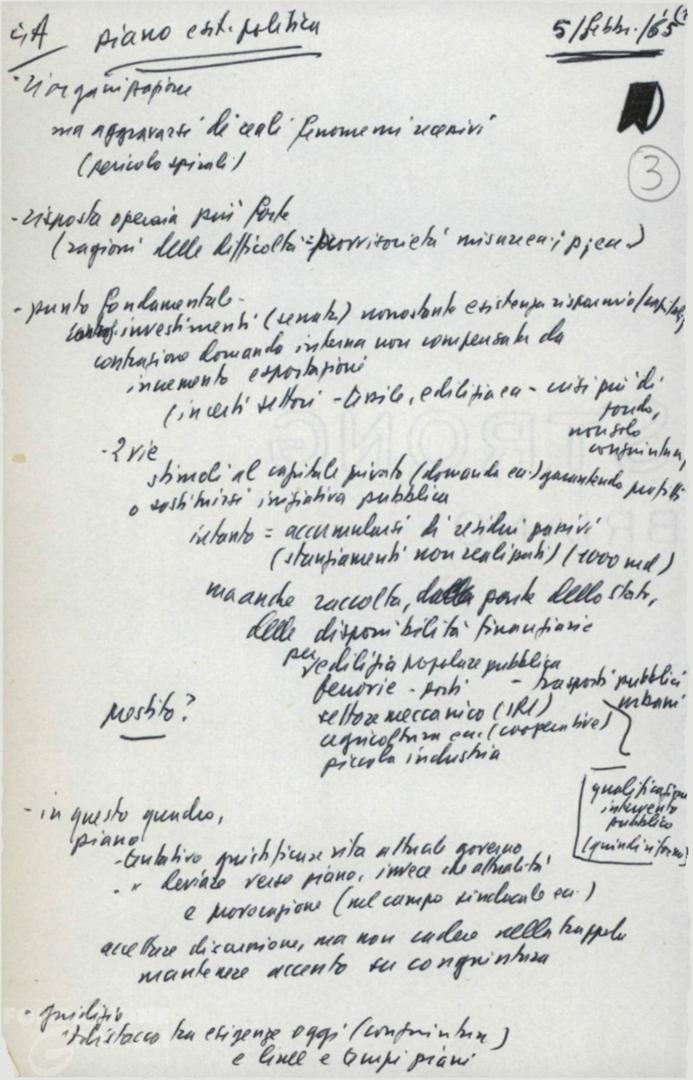 piano e sit. politica 5/febbr./65
- riorganizzazione
ma aggravarsi di reali fenomeni recessivi
(pericolo spirali)
3
- risposta operaia più forte
(ragioni delle difficoltà = provvisorietà misure ecc.)
- punto fondamentale -
investimenti (senato) nonostante esistenza risparmio/capitali,
contrazione domanda interna non compensata da
incremento esportazioni
(in certi settori - tessile, edilizia ecc - crisi più di
fondo,
non solo
congiuntura,
- 2 vie
stimoli al capitale privato (domanda ecc.) garantendo profitti
o sostituirsi iniziativa pubblica
intanto = accumularsi di residui passivi
(stanziamenti non realizzati) (1000 md)
ma anche raccolta, da parte dello stato,
delle disponibilità finanziarie
per edilizia popolare pubblica
ferrovie - porti - trasporti pubblici
urbani
prestito?
settore meccanico (IRI)
agricoltura ecc. (cooperative)
piccola industria
qualificazione
intervento
pubblico
(quindi riforme)
- in questo quadro,
piano
- tentativo giustificare vita attuale governo
- " deviare verso piano, invece che attualità
e provocazione (nel campo sindacale ecc.)
accettare discussione, ma non cadere nella trappola
mantenere accento su congiuntura
- giudizio
distacco tra esigenze oggi (congiuntura)
e linee e tempi piani